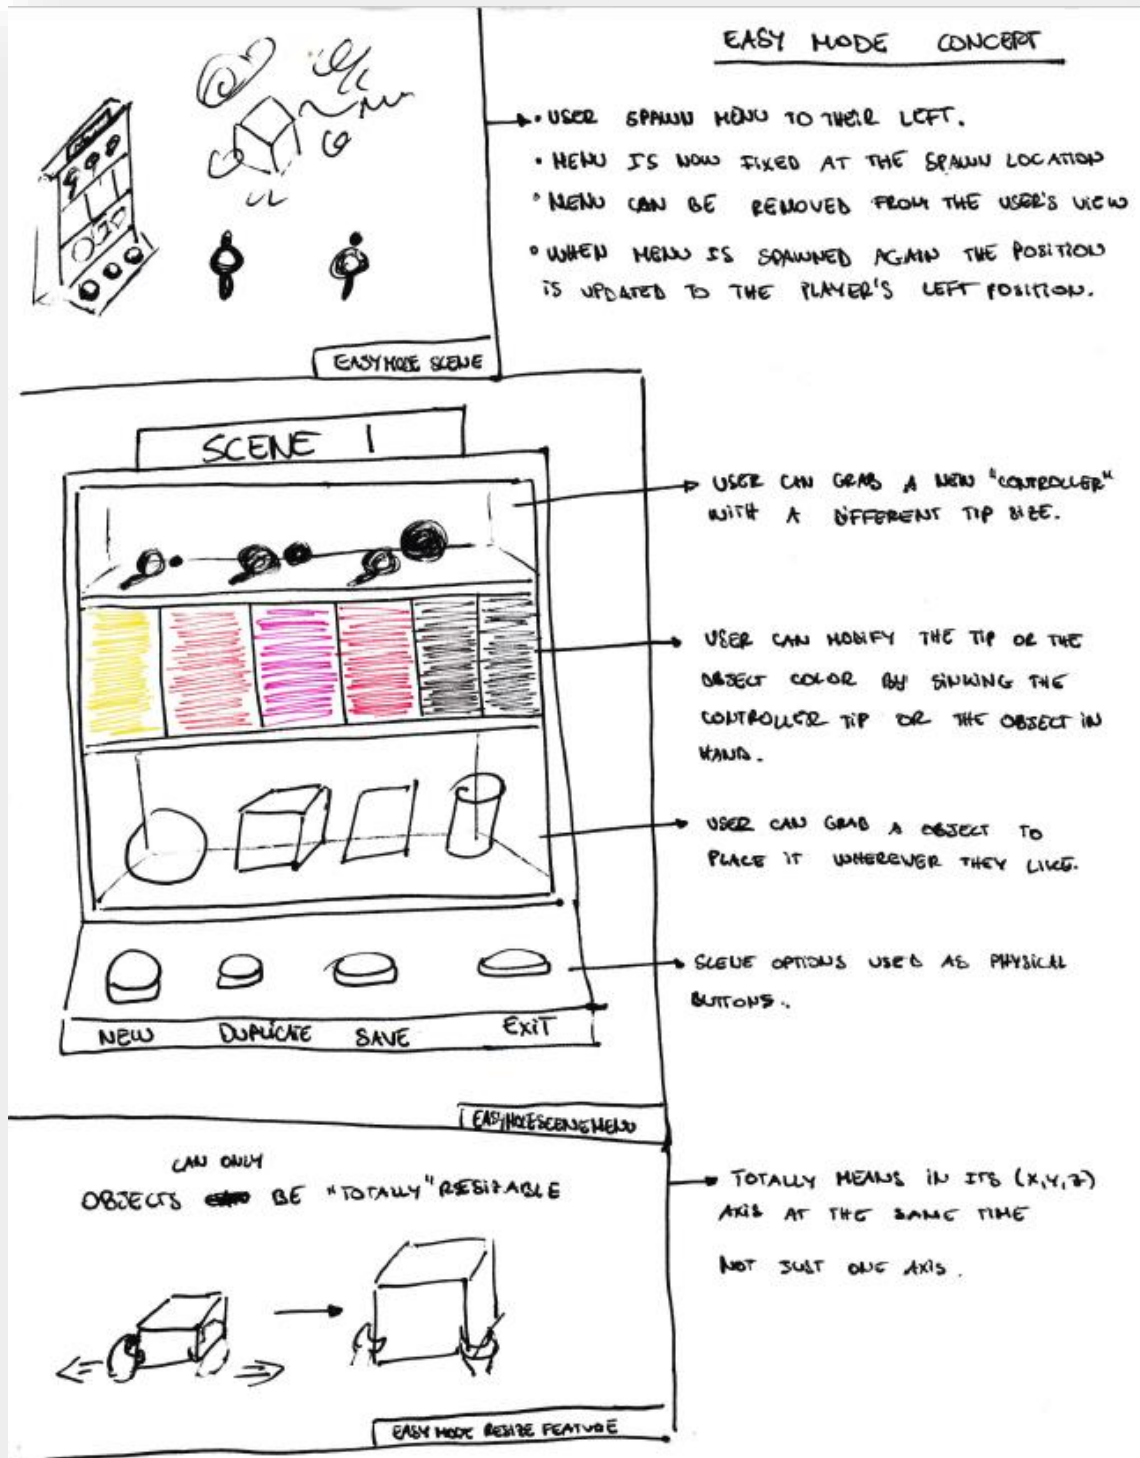 EASY MODE CONCEPT
• USER SPAWN MENU TO THEIR LEFT.
• MENU IS NOW FIXED AT THE SPAWN LOCATION
• MENU CAN BE REMOVED FROM THE USER'S VIEW
• WHEN MENU IS SPAWNED AGAIN THE POSITION
IS UPDATED TO THE PLAYER'S LEFT POSITION.
EASY MODE SCENE
SCENE 1
USER CAN GRAB A NEW "CONTROLLER"
WITH A DIFFERENT TIP SIZE.
USER CAN MODIFY THE TIP OR THE
OBJECT COLOR BY SINKING THE
CONTROLLER TIP OR THE OBJECT IN
HAND.
USER CAN GRAB A OBJECT TO
PLACE IT WHEREVER THEY LIKE.
SCENE OPTIONS USED AS PHYSICAL
BUTTONS.
NEW DUPLICATE SAVE EXIT
EASY MODE SCENE MENU
CAN ONLY
OBJECTS BE "TOTALLY" RESIZABLE
TOTALLY MEANS IN ITS (X,Y,Z)
AXIS AT THE SAME TIME
NOT JUST ONE AXIS.
EASY MODE RESIZE FEATURE